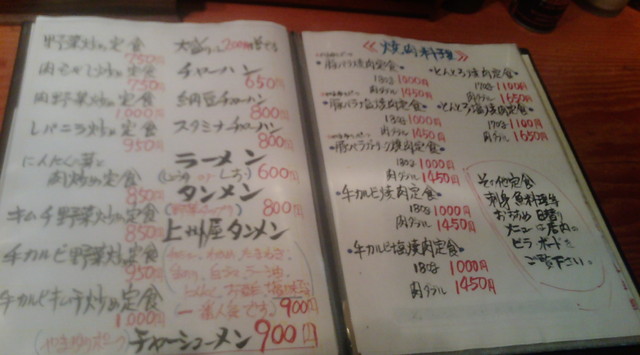 野菜炒め定食
750円
肉もやし炒め定食
750円
肉野菜炒め定食
1,000円
レバニラ炒め定食
950円
にんにくの芽と
肉炒め定食
850円
キムチ野菜炒め定食
850円
牛カルビ野菜炒め定食
950円
牛カルビキムチ炒め定食
1,000円
大盛りプラス200円増です
チャーハン
650円
納豆チャーハン
800円
スタミナチャーハン
800円
ラーメン
600円
タンメン
800円
上州屋タンメン
一番人気です
900円
チャーシューメン
900円
《焼肉料理》
豚バラ焼肉定食
180g 1000円
肉ダブル 1450円
豚バラ塩焼肉定食
180g 1000円
肉ダブル 1450円
180g 1000円
肉ダブル 1450円
牛カルビ焼肉定食
180g 1000円
肉ダブル 1450円
牛カルビ塩焼肉定食
180g 1000円
肉ダブル 1450円
とんとろ焼肉定食
170g 1100円
肉ダブル 1650円
とんとろ塩焼肉定食
170g 1100円
肉ダブル 1650円
その他定食
刺身魚料理等
おすすめ日替り
メニューは店内の
ビラ ボードを
ご覧下さい。